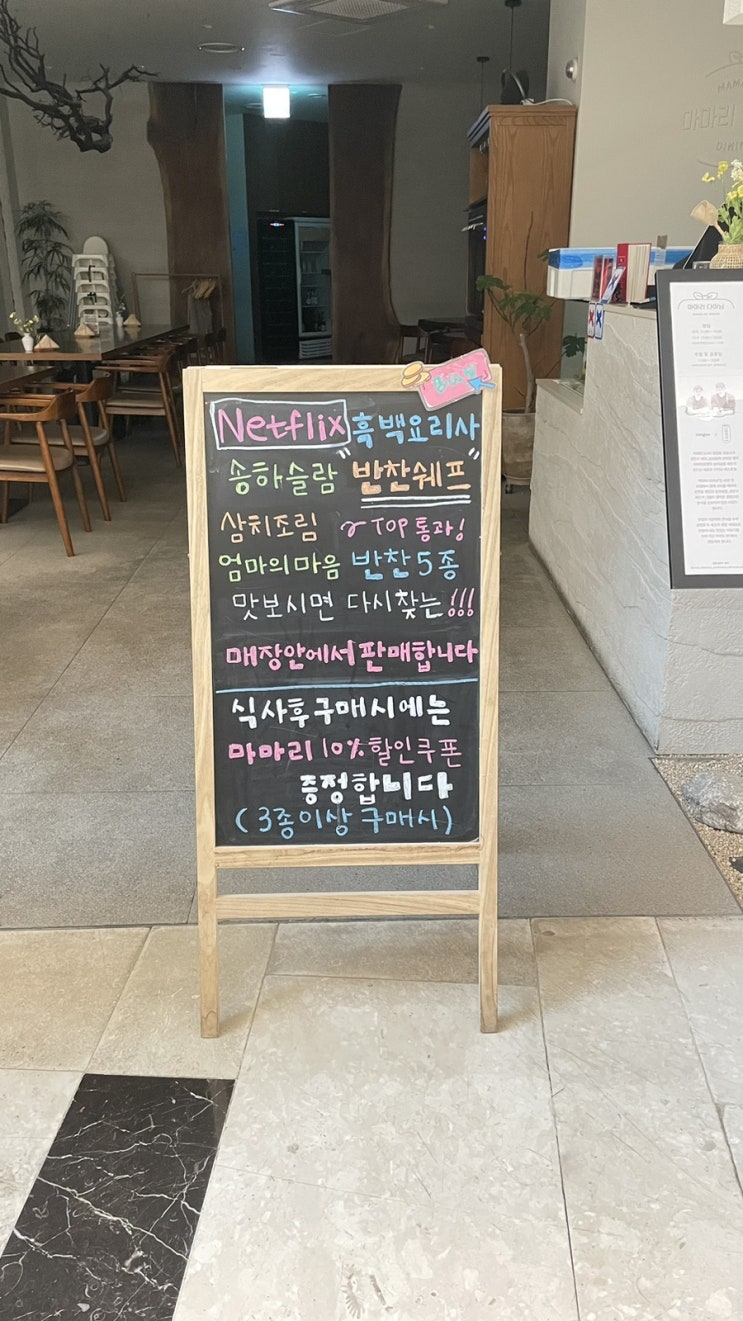 Netflix 흑백요리사
송하슬람 "반찬쉐프"
삼치조림 ~TOP통과!
엄마의마음 반찬5종
맛보시면 다시찾는!!!
매장안에서판매합니다
식사후구매시에는
마마리10%할인쿠폰
증정합니다
(3종이상 구매시)
마마리
마마리 다이닝